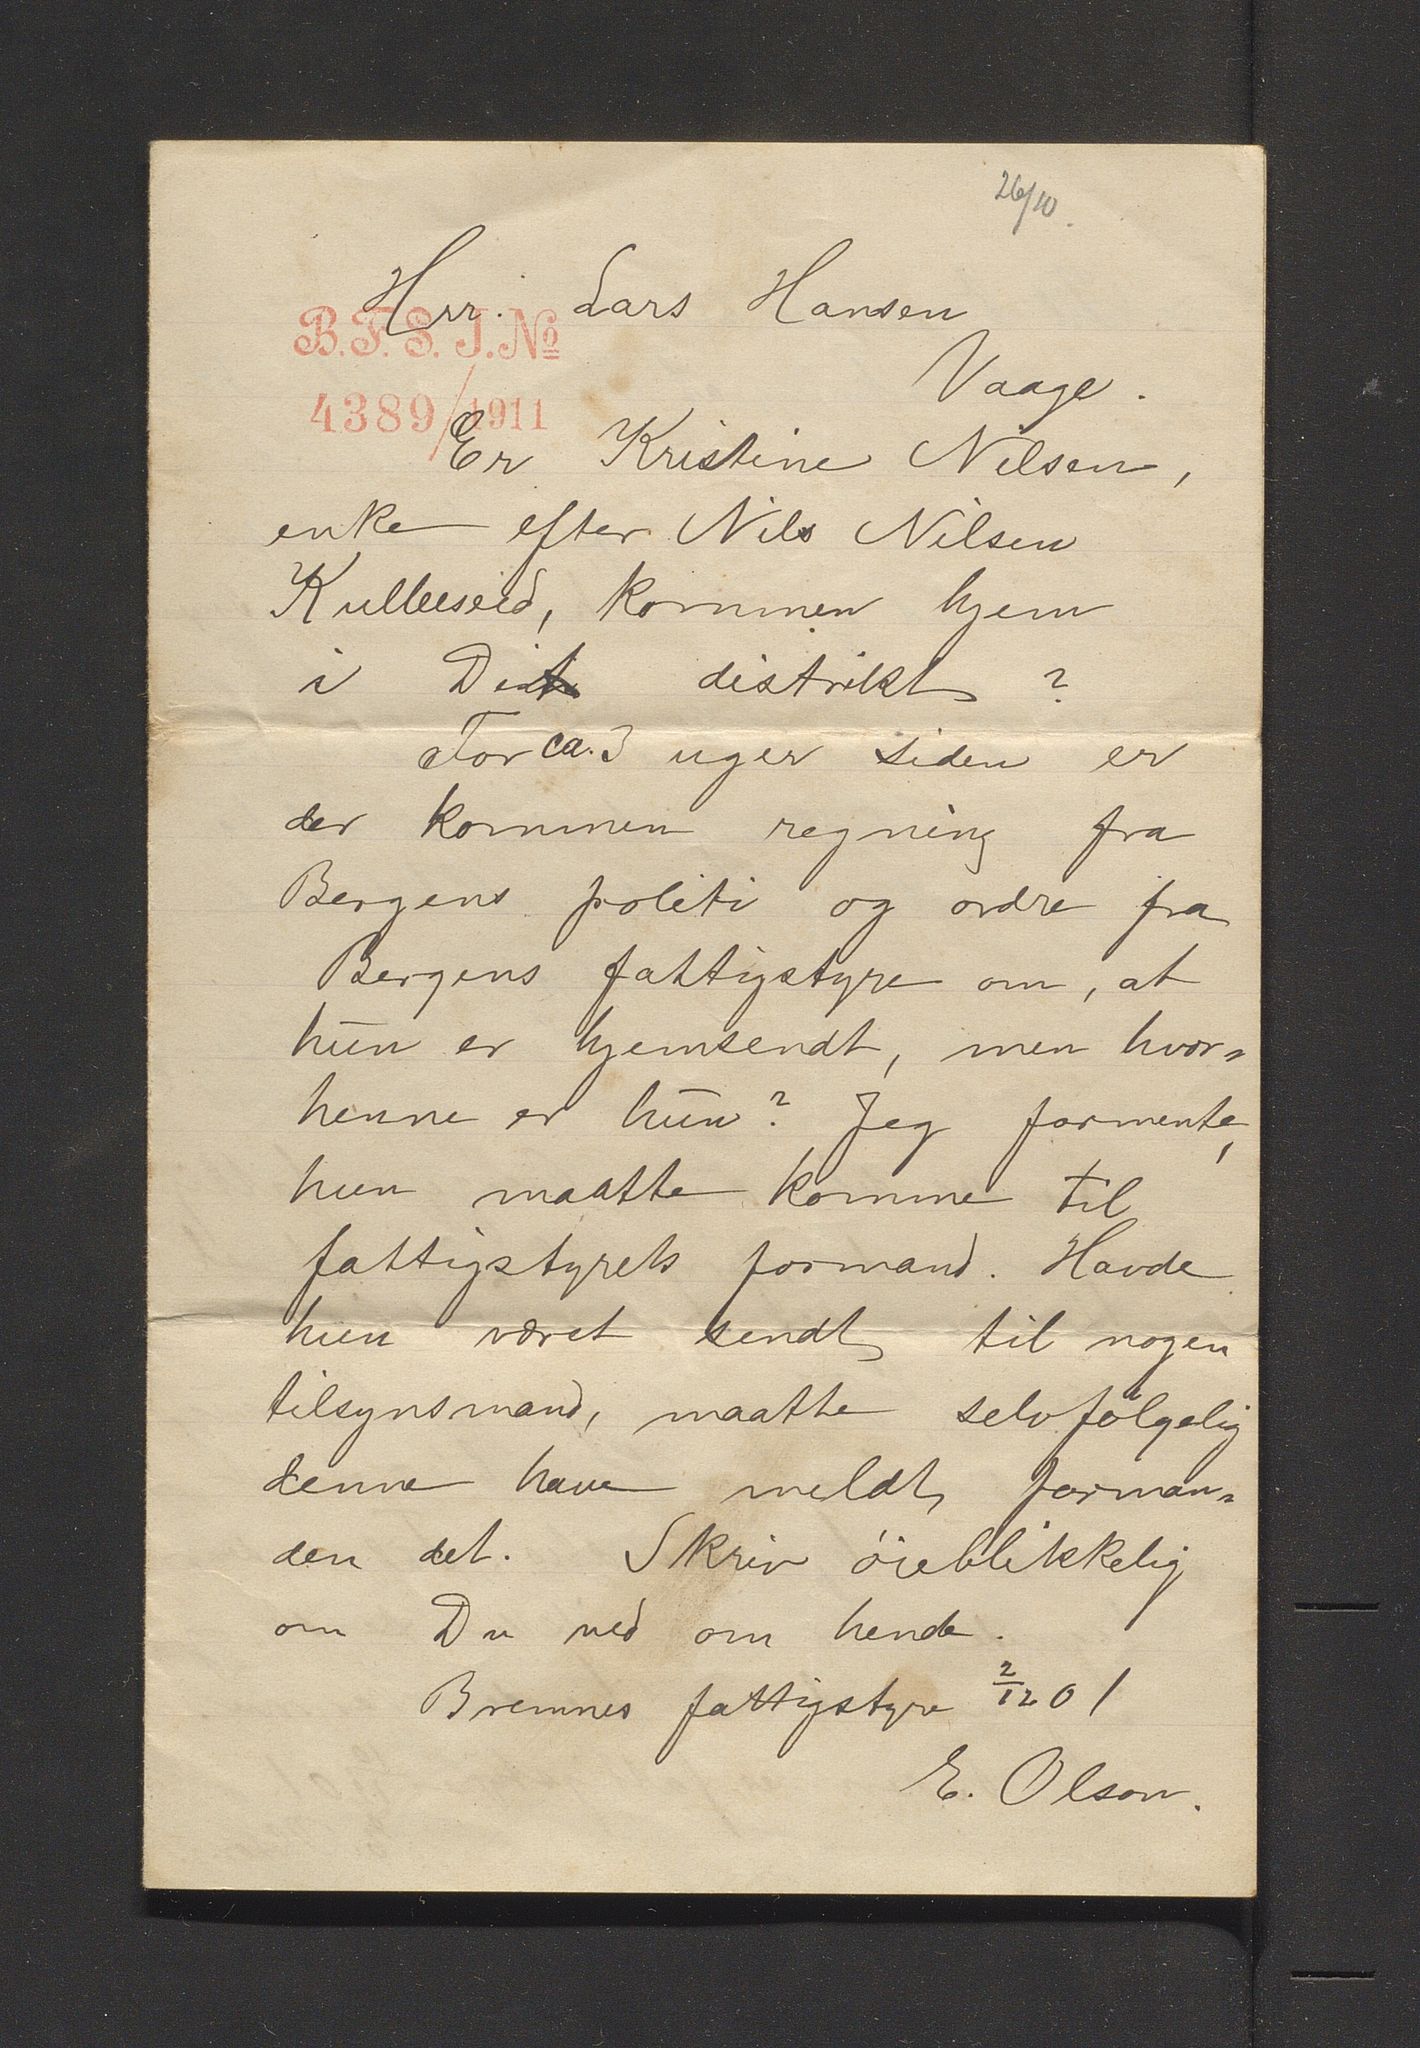 26/10.
Hrr. Lars Hansen
B.F.S. J.No
Vaage.
4389/1911
Er Kristine Nilsen,
enke efter Nils Nilsen
Kulleseid, kommen hjem
i Dit distrikt?
For ca. 3 uger siden er
der kommen regning fra
Bergens politi og ordre fra
Bergens fattigstyre om, at
hun er hjemsendt, men hvor-
henne er hun? Jeg formente,
hun maatte komme til
fattigstyrets formand. Havde
hun været sendt til nogen
tilsynsmand, maatte selvfølgelig
denne have meldt forman-
den det. Skriv øieblikkelig
om Du ved om hende.
Bremnes fattigstyre 2/12 01
E. Olson.